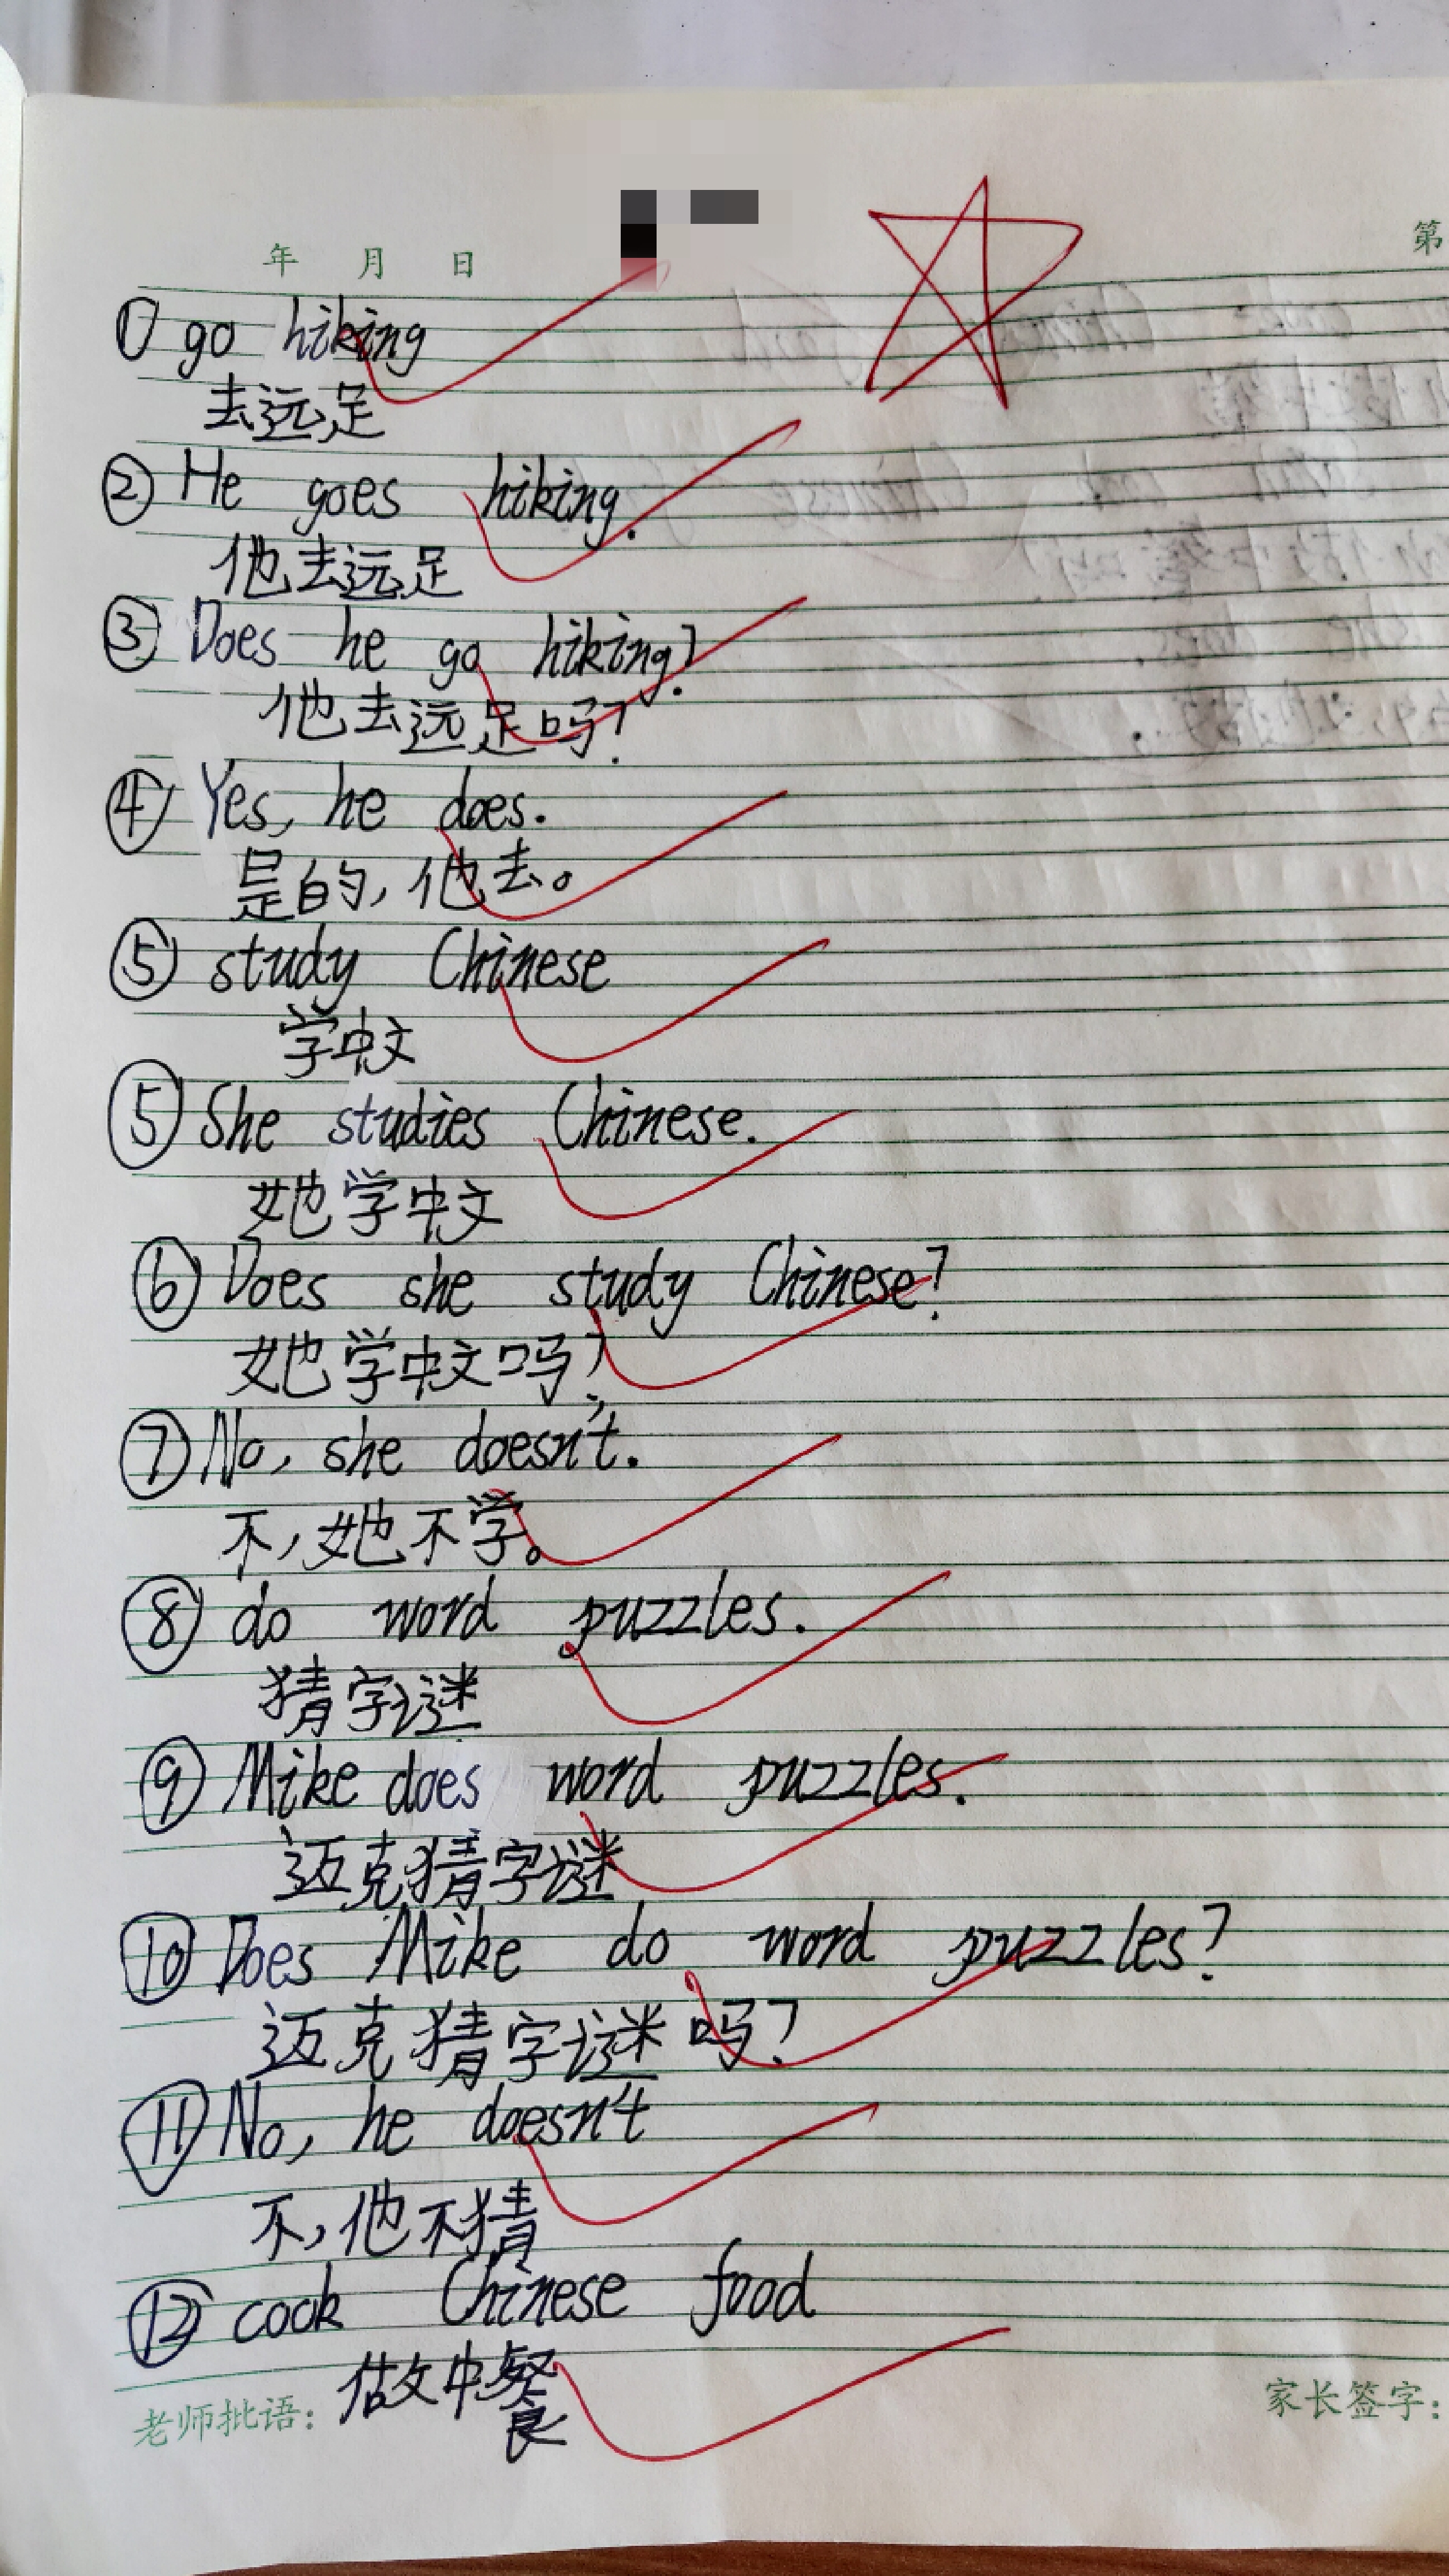 年 月 日
第
① go hiking
去远足
② He goes hiking.
他去远足
③ Does he go hiking?
他去远足吗?
④ Yes, he does.
是的,他去。
⑤ study Chinese
学中文
⑤ She studies Chinese.
她学中文
⑥ Does she study Chinese?
她学中文吗?
⑦ No, she doesn't.
不,她不学。
⑧ do word puzzles.
猜字谜
⑨ Mike does word puzzles.
迈克猜字谜
⑩ Does Mike do word puzzles?
迈克猜字谜吗?
⑪ No, he doesn't
不,他不猜
⑫ cook Chinese food
做中餐
老师批语:
家长签字: